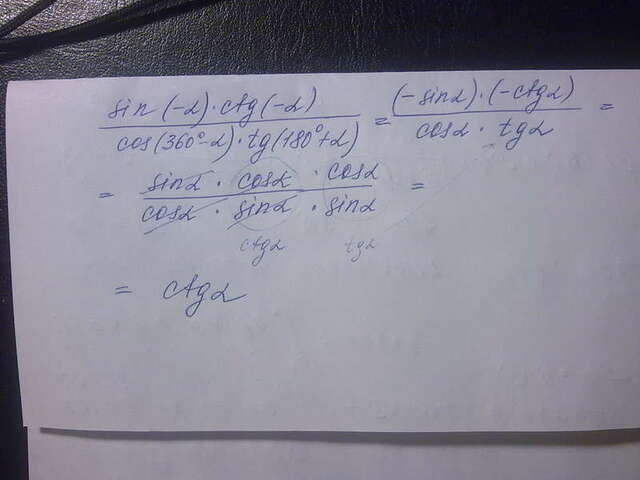 sin(-α)·ctg(-α) / cos(360°-α)·tg(180°+α) = (-sinα)·(-ctgα) / cosα·tgα =
= sinα·cosα·cosα / cosα·sinα·sinα =
ctgα tgα
= ctgα